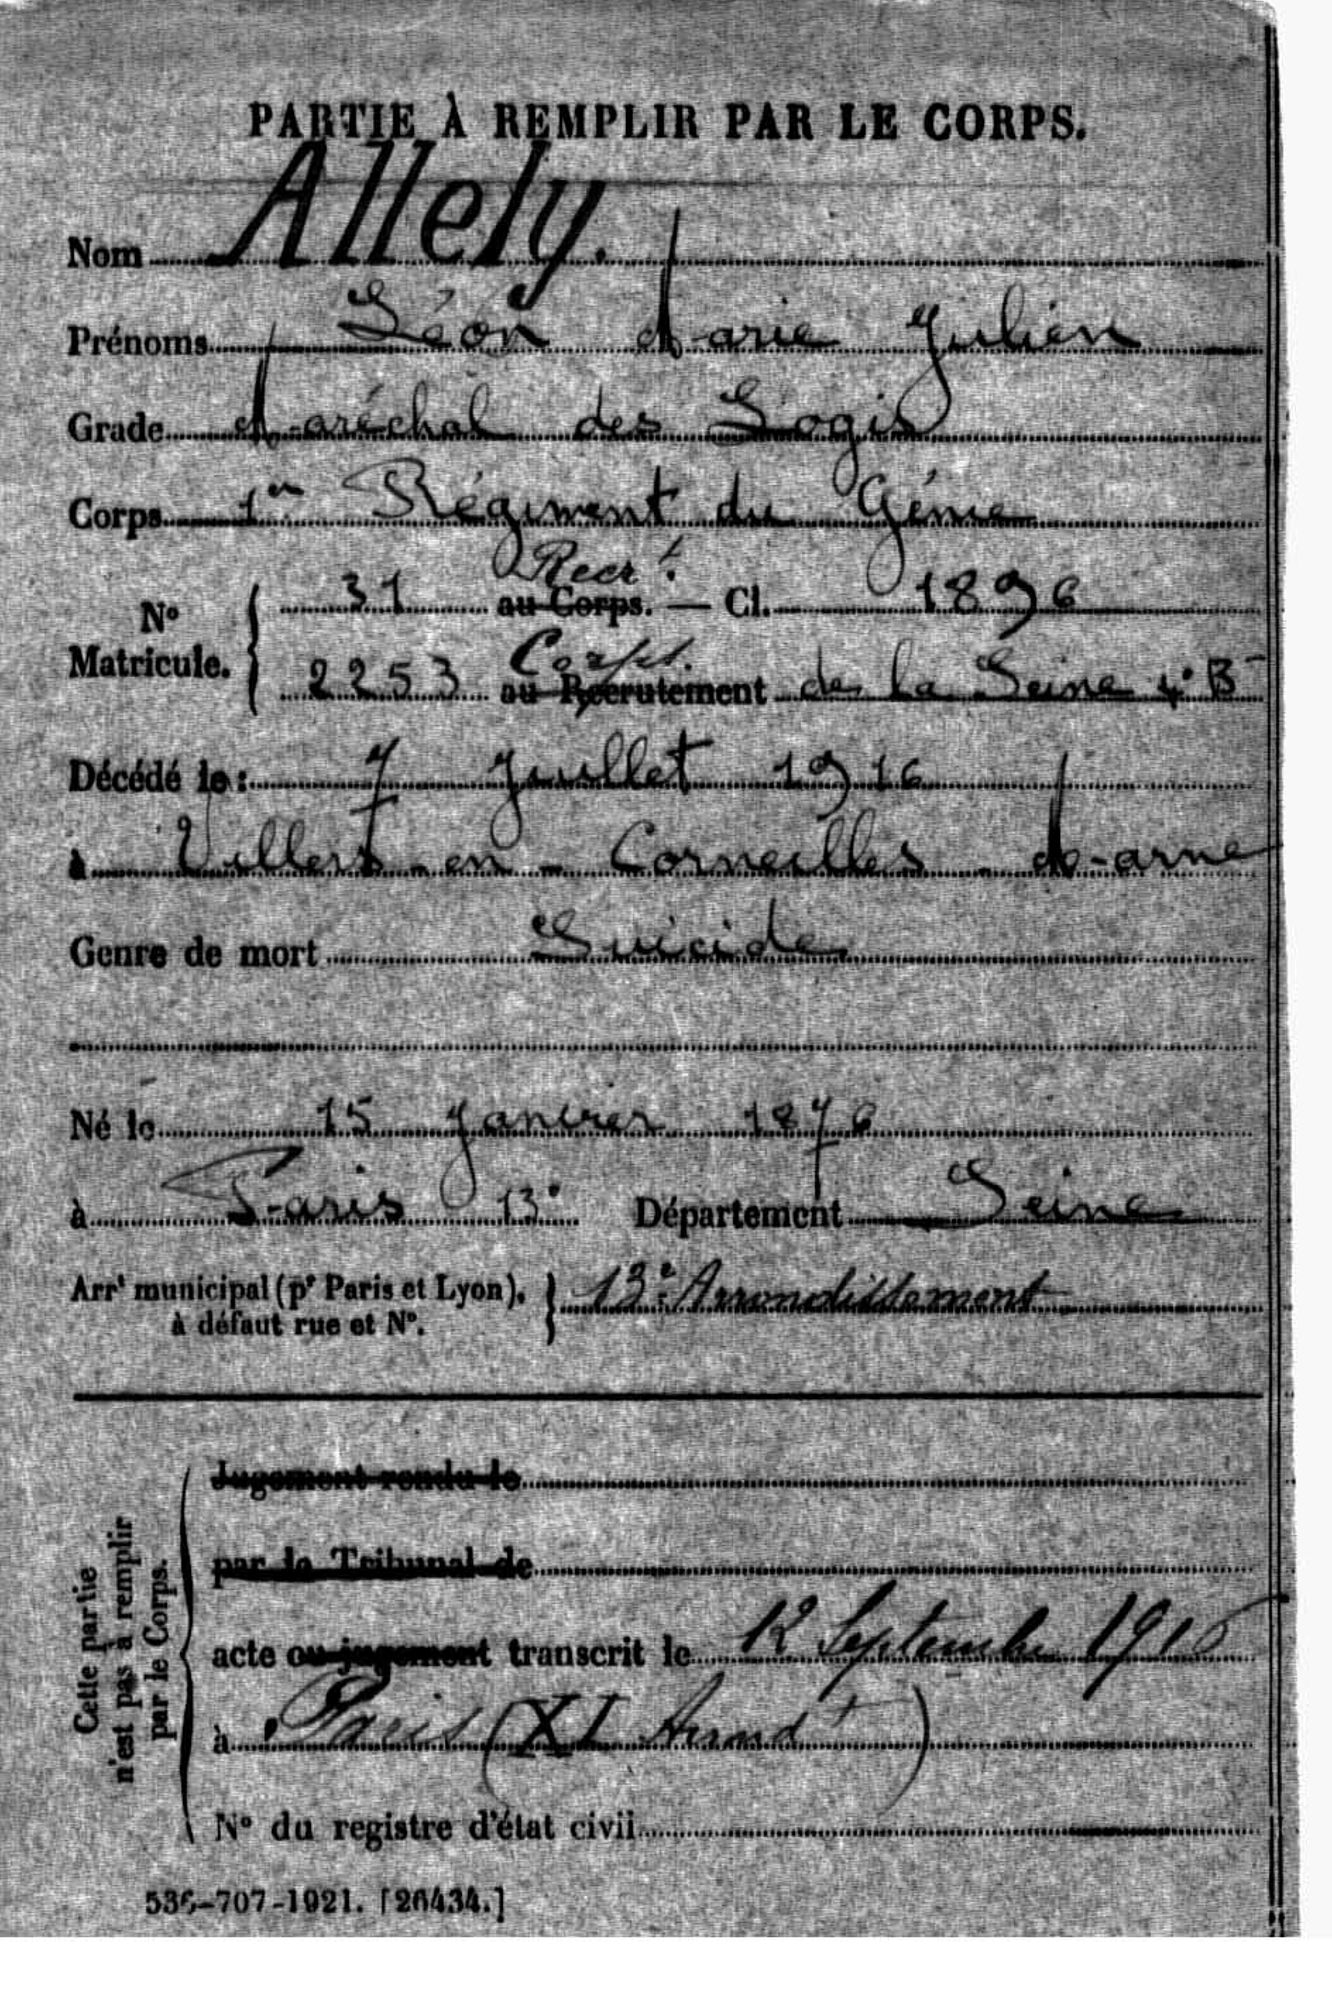 PARTIE À REMPLIR PAR LE CORPS.
Nom Allely.
Prénoms Léon Marie Julien
Grade Maréchal des Logis
Corps 1er Régiment du Génie
Recrt.
31 au Corps. — Cl. 1896
N°
Matricule.
Corps.
2253 au Recrutement de la Seine 4e B
Décédé le : 7 Juillet 1916
à Villers-en-Corneilles Marne
Genre de mort Suicide
Né le 15 Janvier 1876
à Paris 13e Département Seine
Arrt municipal (pr Paris et Lyon), 13e Arrondissement
à défaut rue et N°.
Cette partie
n'est pas à remplir
par le Corps.
Jugement rendu le
par le Tribunal de
acte ou jugement transcrit le 12 Septembre 1916
à Paris (XI Arrondt)
N° du registre d'état civil
536-707-1921. [26434.]